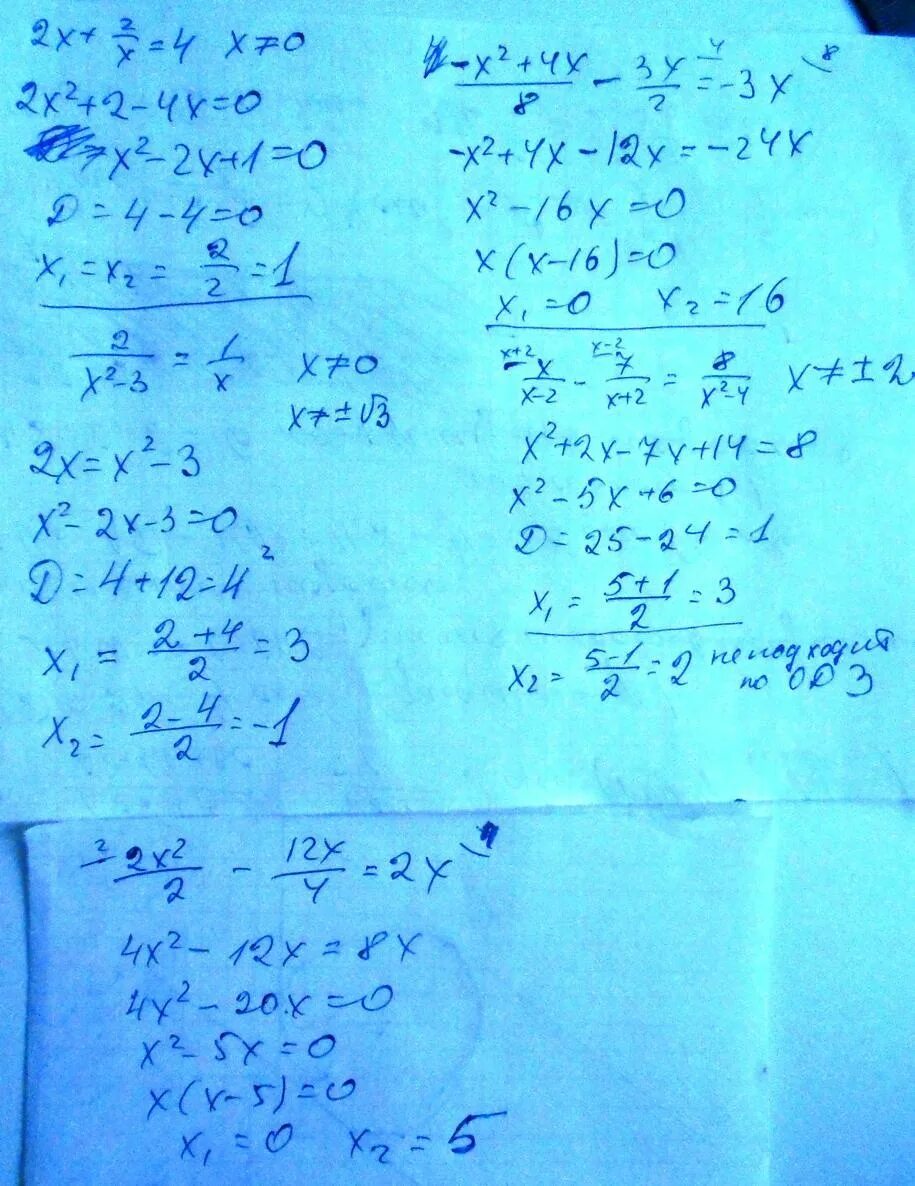 2x + 2/x = 4   x ≠ 0
2x² + 2 - 4x = 0
x² - 2x + 1 = 0
D = 4 - 4 = 0
x₁ = x₂ = 2/2 = 1
2/(x² - 3) = 1/x   x ≠ 0
x ≠ ±√3
2x = x² - 3
x² - 2x - 3 = 0
D = 4 + 12 = 4²
x₁ = (2 + 4)/2 = 3
x₂ = (2 - 4)/2 = -1
(-x² + 4x)/8 - 3x/2 \4 = -3x \8
-x² + 4x - 12x = -24x
x² - 16x = 0
x(x - 16) = 0
x₁ = 0   x₂ = 16
x+2   x-2
x/(x-2) - 7/(x+2) = 8/(x²-4)   x ≠ ±2
x² + 2x - 7x + 14 = 8
x² - 5x + 6 = 0
D = 25 - 24 = 1
x₁ = (5+1)/2 = 3
x₂ = (5-1)/2 = 2 не подходит
по ОДЗ
2/ 2x²/2 - 12x/4 = 2x \4
4x² - 12x = 8x
4x² - 20x = 0
x² - 5x = 0
x(x - 5) = 0
x₁ = 0   x₂ = 5